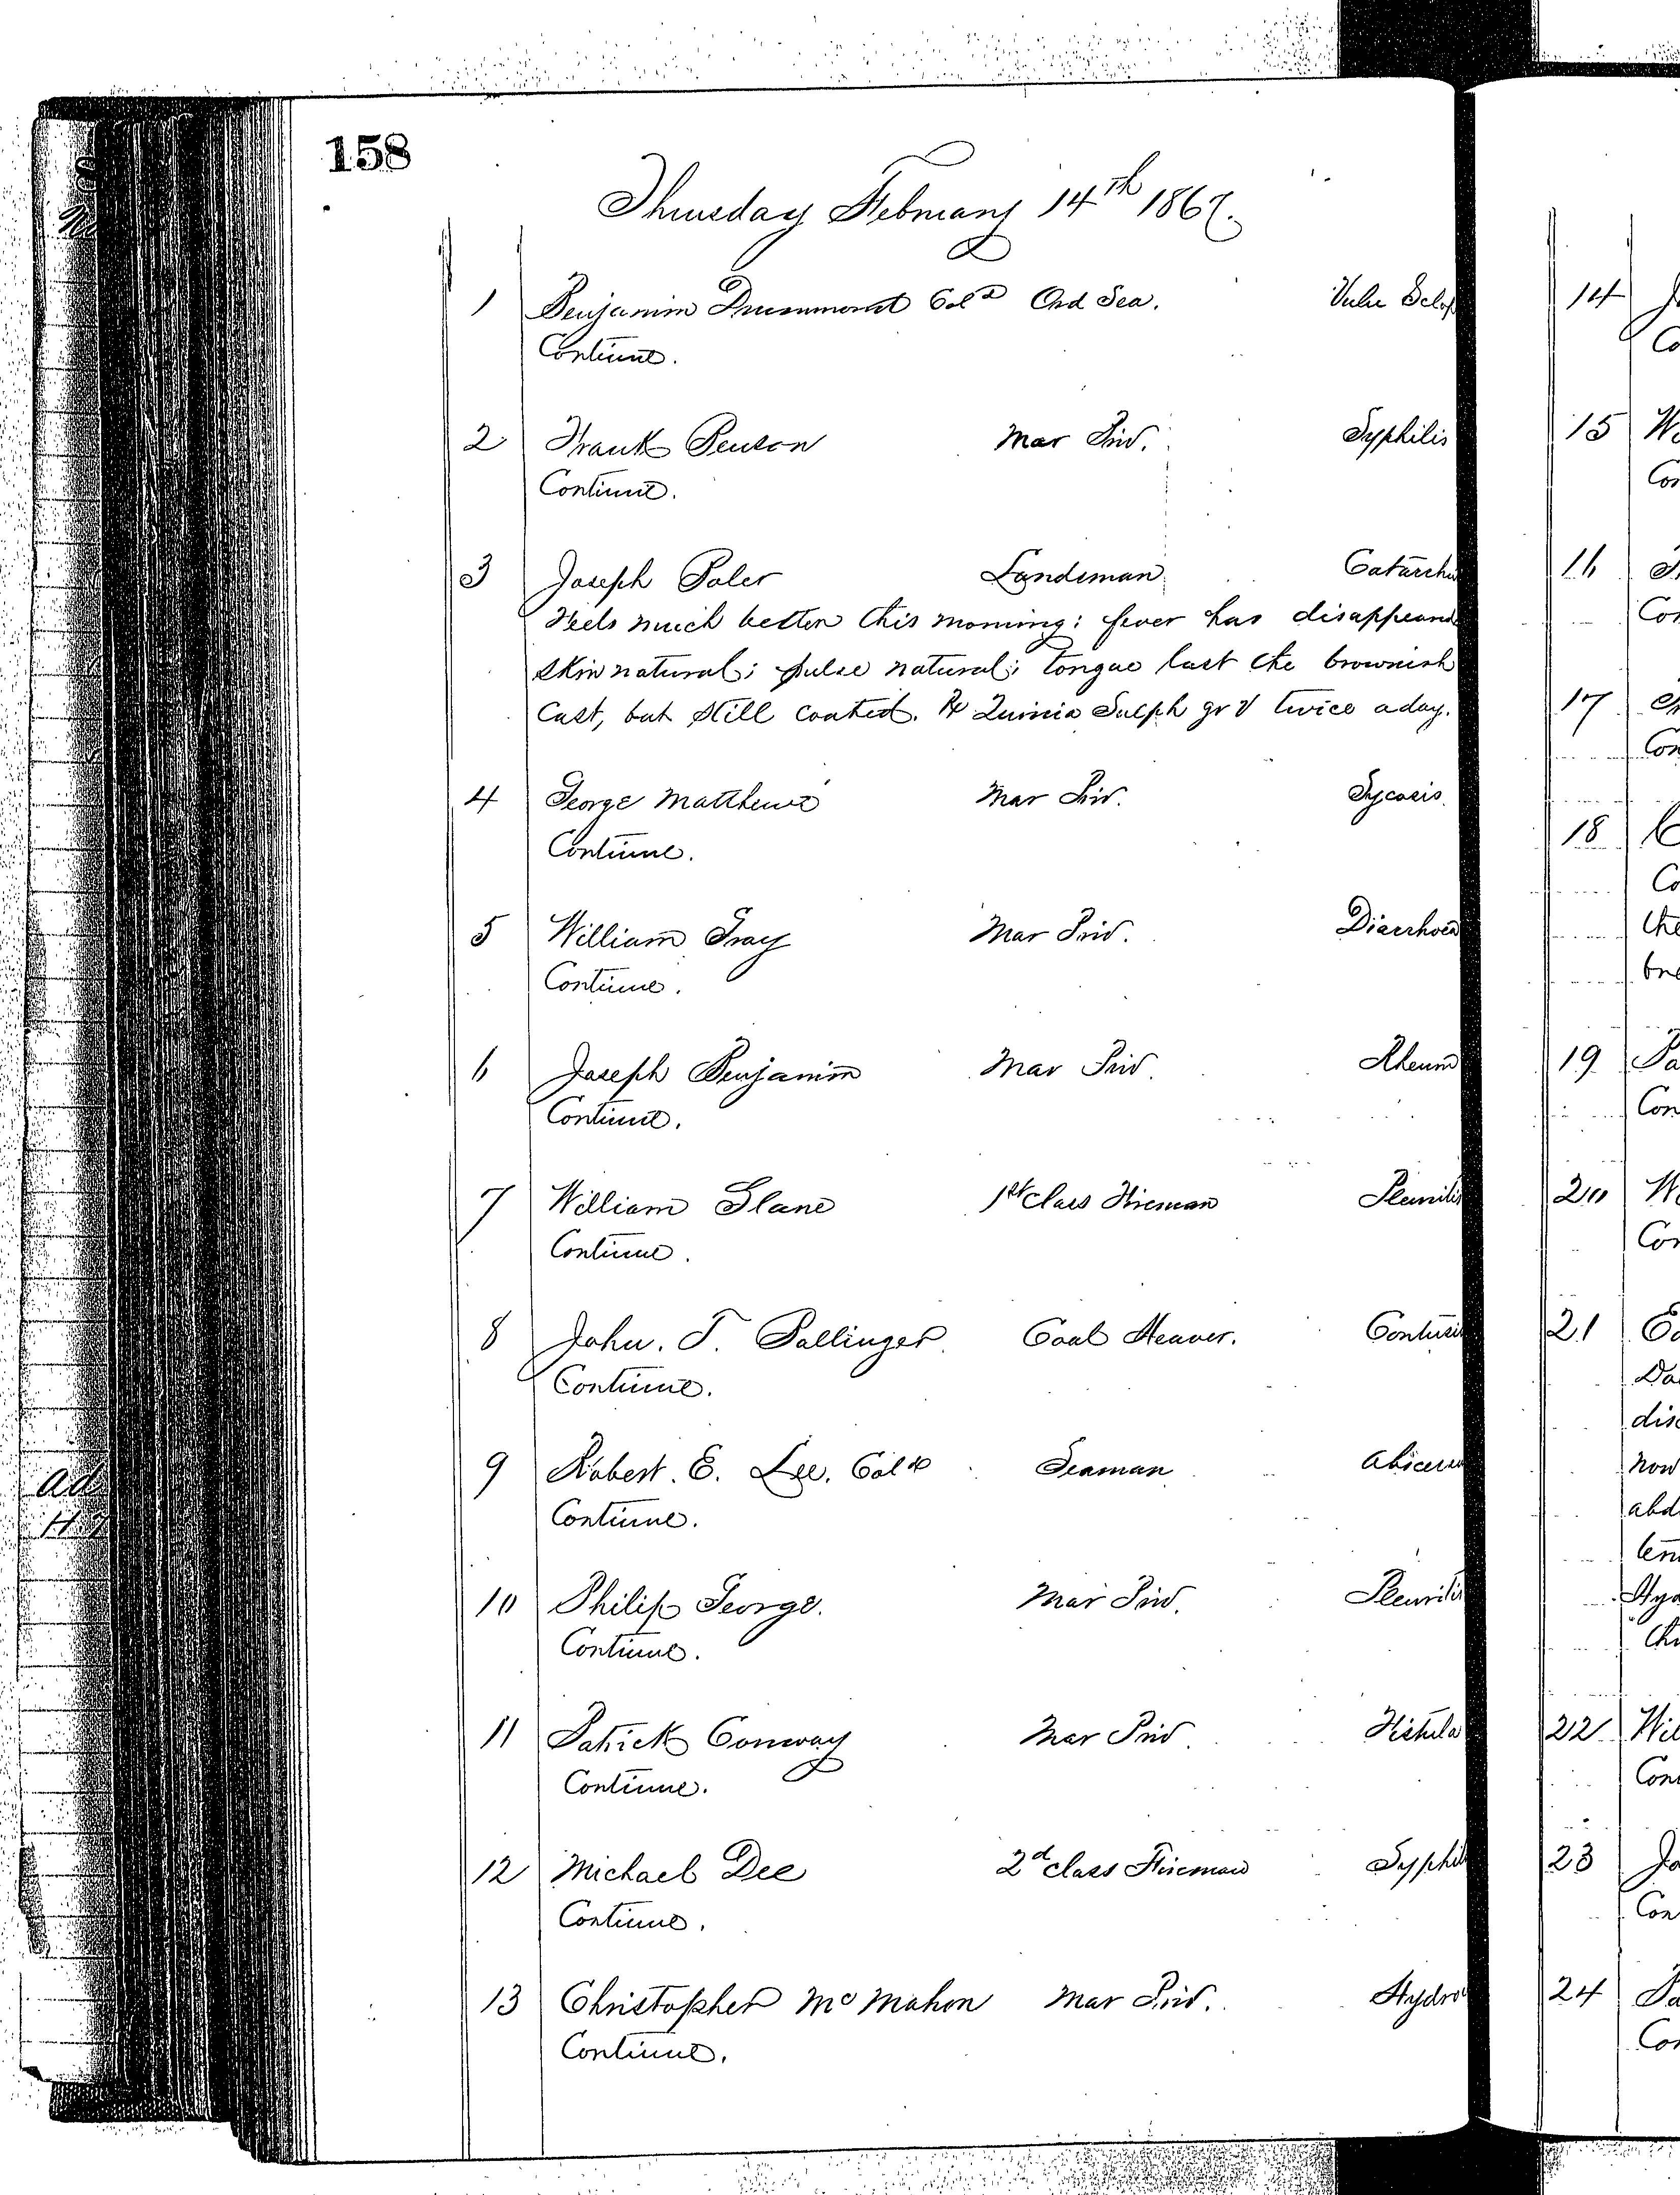 158
Thursday February 14th 1867.
1 Benjamin Drummond Cold Ord Sea. Vuln Sclop
Continue.
2 Frank Benson Mar Priv. Syphilis
Continue.
3 Joseph Poler Landsman Catarrhu
Feels much better this morning: fever has disappeared
skin natural; pulse natural; tongue lost the brownish
Cast, but still coated. ℞ Quinia Sulph gr V twice a day.
4 George Matthews Mar Priv. Sycosis
Continue.
5 William Gray Mar Priv. Diarrhoea
Continue.
6 Joseph Benjamin Mar Priv. Rheum
Continue.
7 William Slane 1st Class Fireman Pleuritis
Continue.
8 John. T. Bollinger Coal Heaver. Contusi
Continue.
9 Robert. E. Lee. Cold Seaman Abscess
Continue.
10 Philip George. Mar Priv. Pleuritis
Continue.
11 Patrick Conway Mar Priv Fistula
Continue.
12 Michael Dee 2d class Fireman Syphil
Continue.
13 Christopher Mc Mahon Mar Priv. Hydro
Continue.
14 J
Co
15 W
Con
16
Con
17
Con
18 C
Co
the
bre
19 Pa
Con
20 W
Con
21
Da
dis
now
abd
ten
Hyd
22 Wil
Con
23 Jo
Con
24 Pa
Con